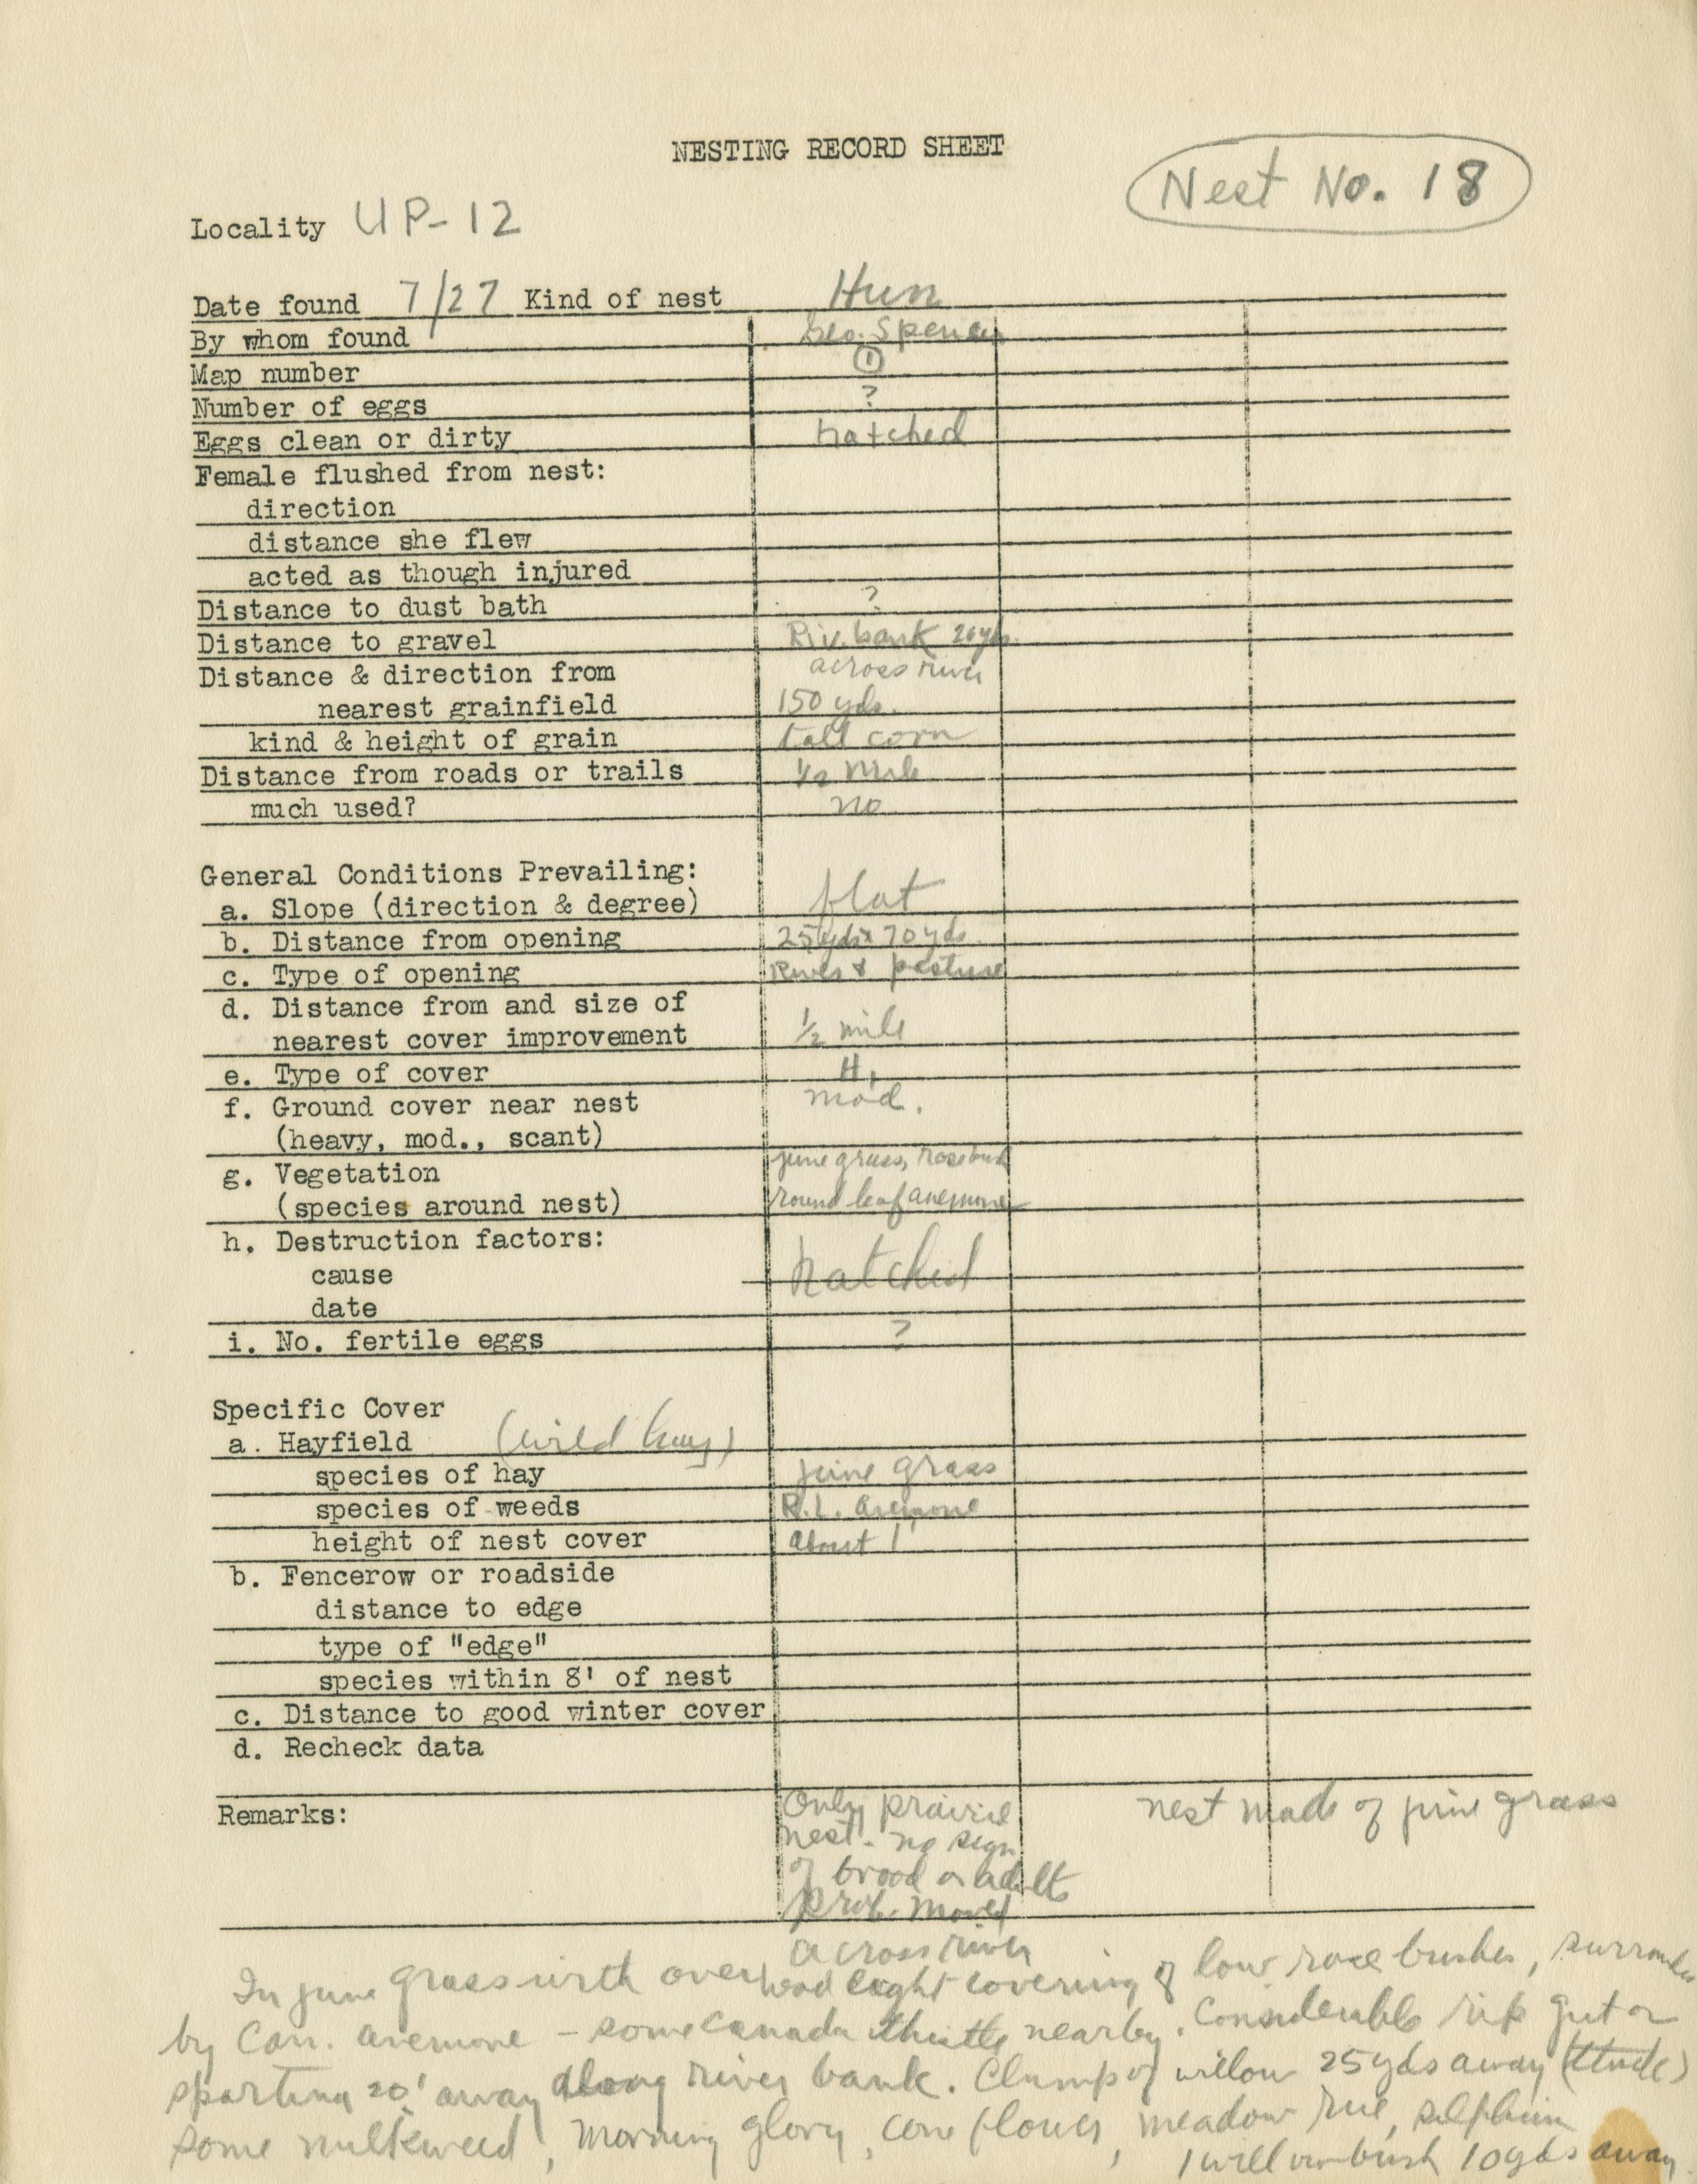 NESTING RECORD SHEET
Nest No. 18
Locality UP-12
Date found 7/27 Kind of nest Hun
By whom found Geo. Spencer
Map number ①
Number of eggs ?
Eggs clean or dirty hatched
Female flushed from nest:
direction
distance she flew
acted as though injured
Distance to dust bath ?
Distance to gravel Riv. bank 20 yds.
Distance & direction from across river
nearest grainfield 150 yds.
kind & height of grain tall corn
Distance from roads or trails 1/2 mile
much used? no
General Conditions Prevailing:
a. Slope (direction & degree) flat
b. Distance from opening 25 yds x 70 yds.
c. Type of opening River & pasture
d. Distance from and size of
nearest cover improvement 1/2 mile
e. Type of cover H1
f. Ground cover near nest mod.
(heavy, mod., scant)
g. Vegetation june grass, rosebush
(species around nest) round leaf anemone
h. Destruction factors:
cause hatched
date
i. No. fertile eggs ?
Specific Cover
a. Hayfield (wild hay)
species of hay june grass
species of weeds R.L. anemone
height of nest cover about 1'
b. Fencerow or roadside
distance to edge
type of "edge"
species within 8' of nest
c. Distance to good winter cover
d. Recheck data
Remarks: Only prairie nest made of june grass
nest - no sign
of brood or adults
prob. moved
across river
In june grass with overhead light covering of low rose bushes,
by Can. anemone - some canada thistle nearby. Considerable rip gut or
spartina 20' away along river bank. Clump of willow 25 yds away
some milkweed, morning glory, cone flower, meadow rue, silphium
1 willow bush 10 yds away